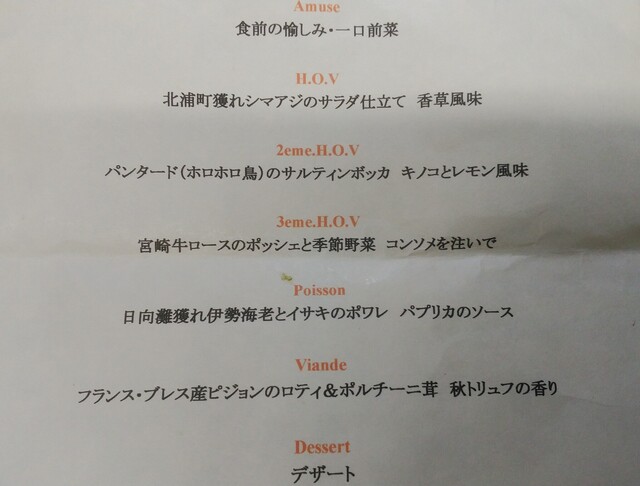 Amuse
食前の愉しみ・一口前菜
H.O.V
北浦町獲れシマアジのサラダ仕立て 香草風味
2eme.H.O.V
パンタード（ホロホロ鳥）のサルティンボッカ キノコとレモン風味
3eme.H.O.V
宮崎牛ロースのポッシェと季節野菜 コンソメを注いで
Poisson
日向灘獲れ伊勢海老とイサキのポワレ パプリカのソース
Viande
フランス・ブレス産ピジョンのロティ＆ポルチーニ茸 秋トリュフの香り
Dessert
デザート